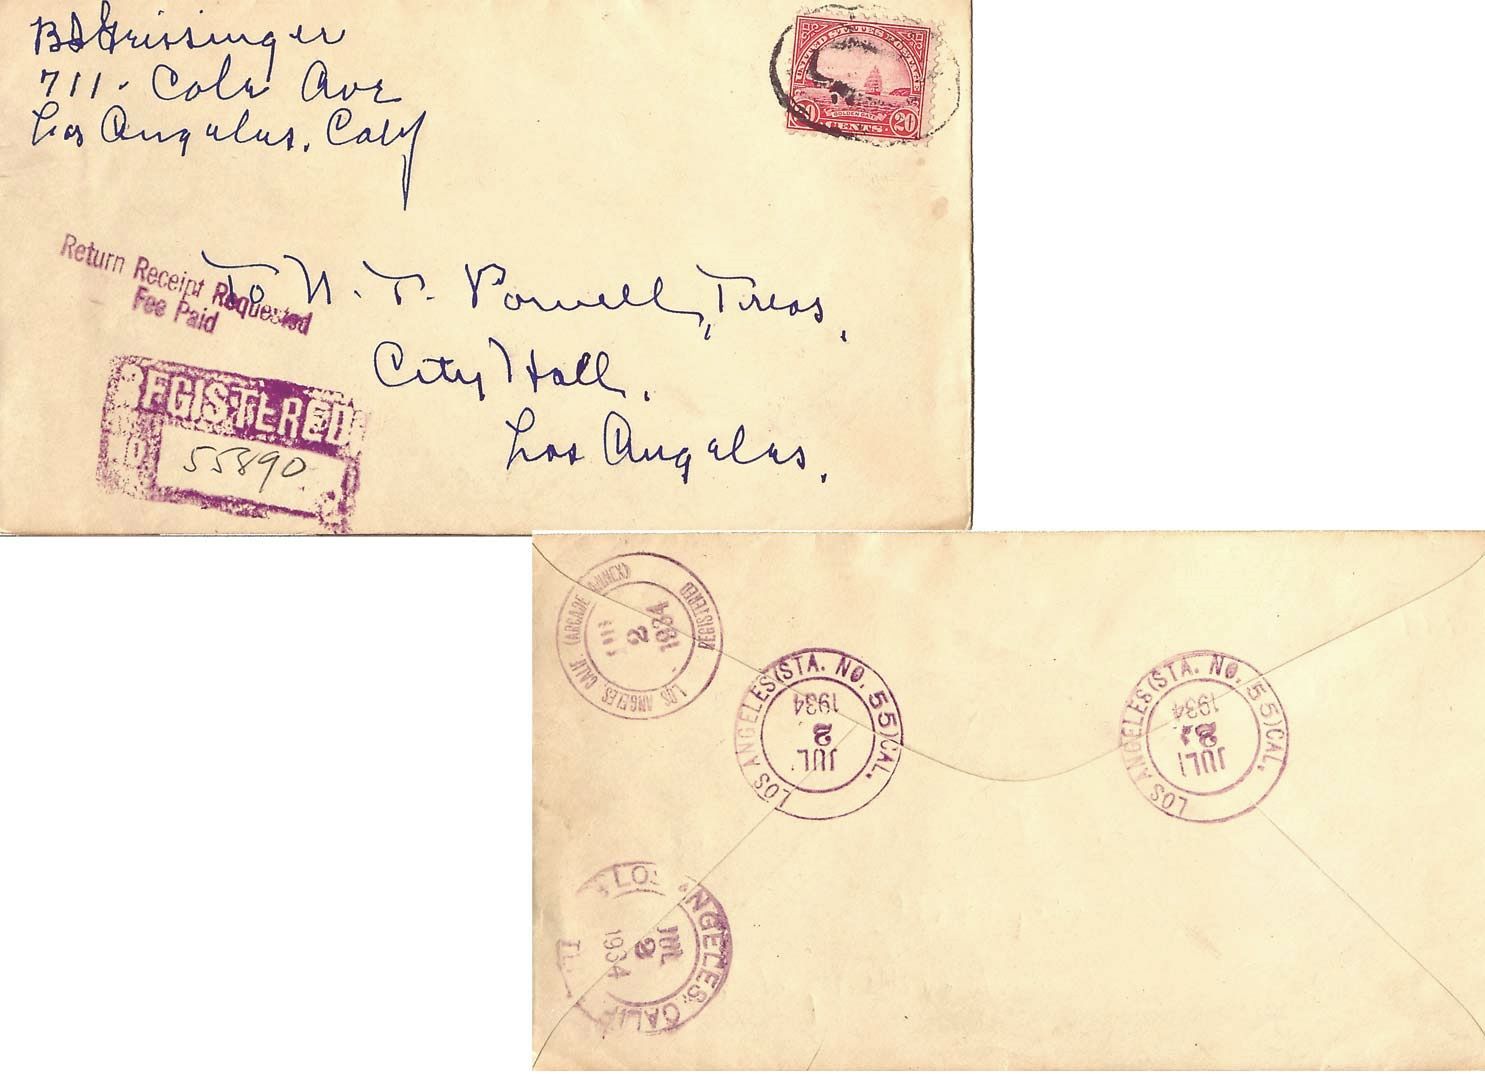 BD Greissinger
711. Cole Ave
Los Angeles, Calif
UNITED STATES POSTAGE
GOLDEN GATE
20 CENTS 20
Return Receipt Requested
Fee Paid
To N. T. Powell, Treas,
City Hall.
Los Angeles.
REGISTERED
NO.
55890
LOS ANGELES, CALIF. (ARCADE ANNEX)
REGISTERED
2
1934
LOS ANGELES (STA. NO. 55) CAL.
JUL
2
1934
LOS ANGELES (STA. NO. 55) CAL.
JUL
2
1934
LOS ANGELES, CALIF
JUL
2
1934